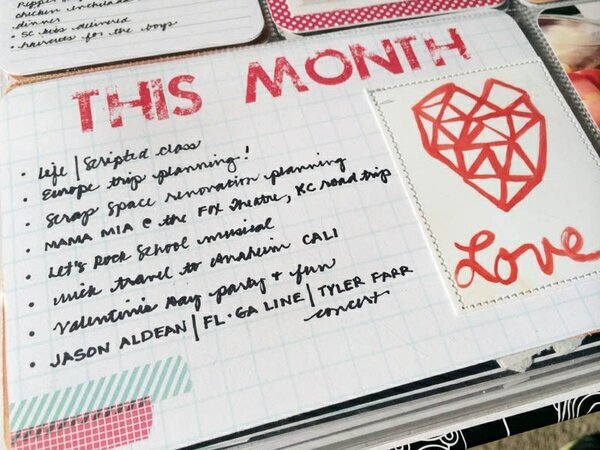 chicken enchilada
dinner
• SC kits delivered
• haircuts for the boys
THIS MONTH
• Life | Scripted class
• Europe trip planning!
• Scrap Space renovation planning
• MAMA MIA @ the FOX Theatre, KC road trip
• Let's Rock School musical
• Mick travel to Anaheim CALI
• Valentine's Day party + fun
• JASON ALDEAN | FL·GA LINE | TYLER FARR
concert
Love